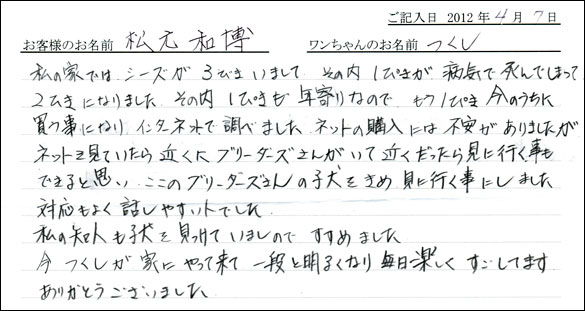 ご記入日 2012年4月7日
お客様のお名前 松元和博 ワンちゃんのお名前 つくし
私の家では シーズが 3びきいまして その内 1ぴきが 病気で死んでしまって
2ひきになりました その内 1ぴきも 年寄りなので もう1ぴき 今のうちに
買う事になり インターネットで調べました ネットの購入には 不安がありましたが
ネットを見ていたら 近くに ブリーダーズさんがいて 近くだったら見に行く事も
できると思い ここのブリーダーズさんの子犬をきめ 見に行く事にしました
対応もよく 話しやすい人でした。
私の知人も子犬を見つけていましので すすめました
今 つくしが 家に やって来て 一段と明るくなり 毎日楽しく すごしてます
ありがとうございました。